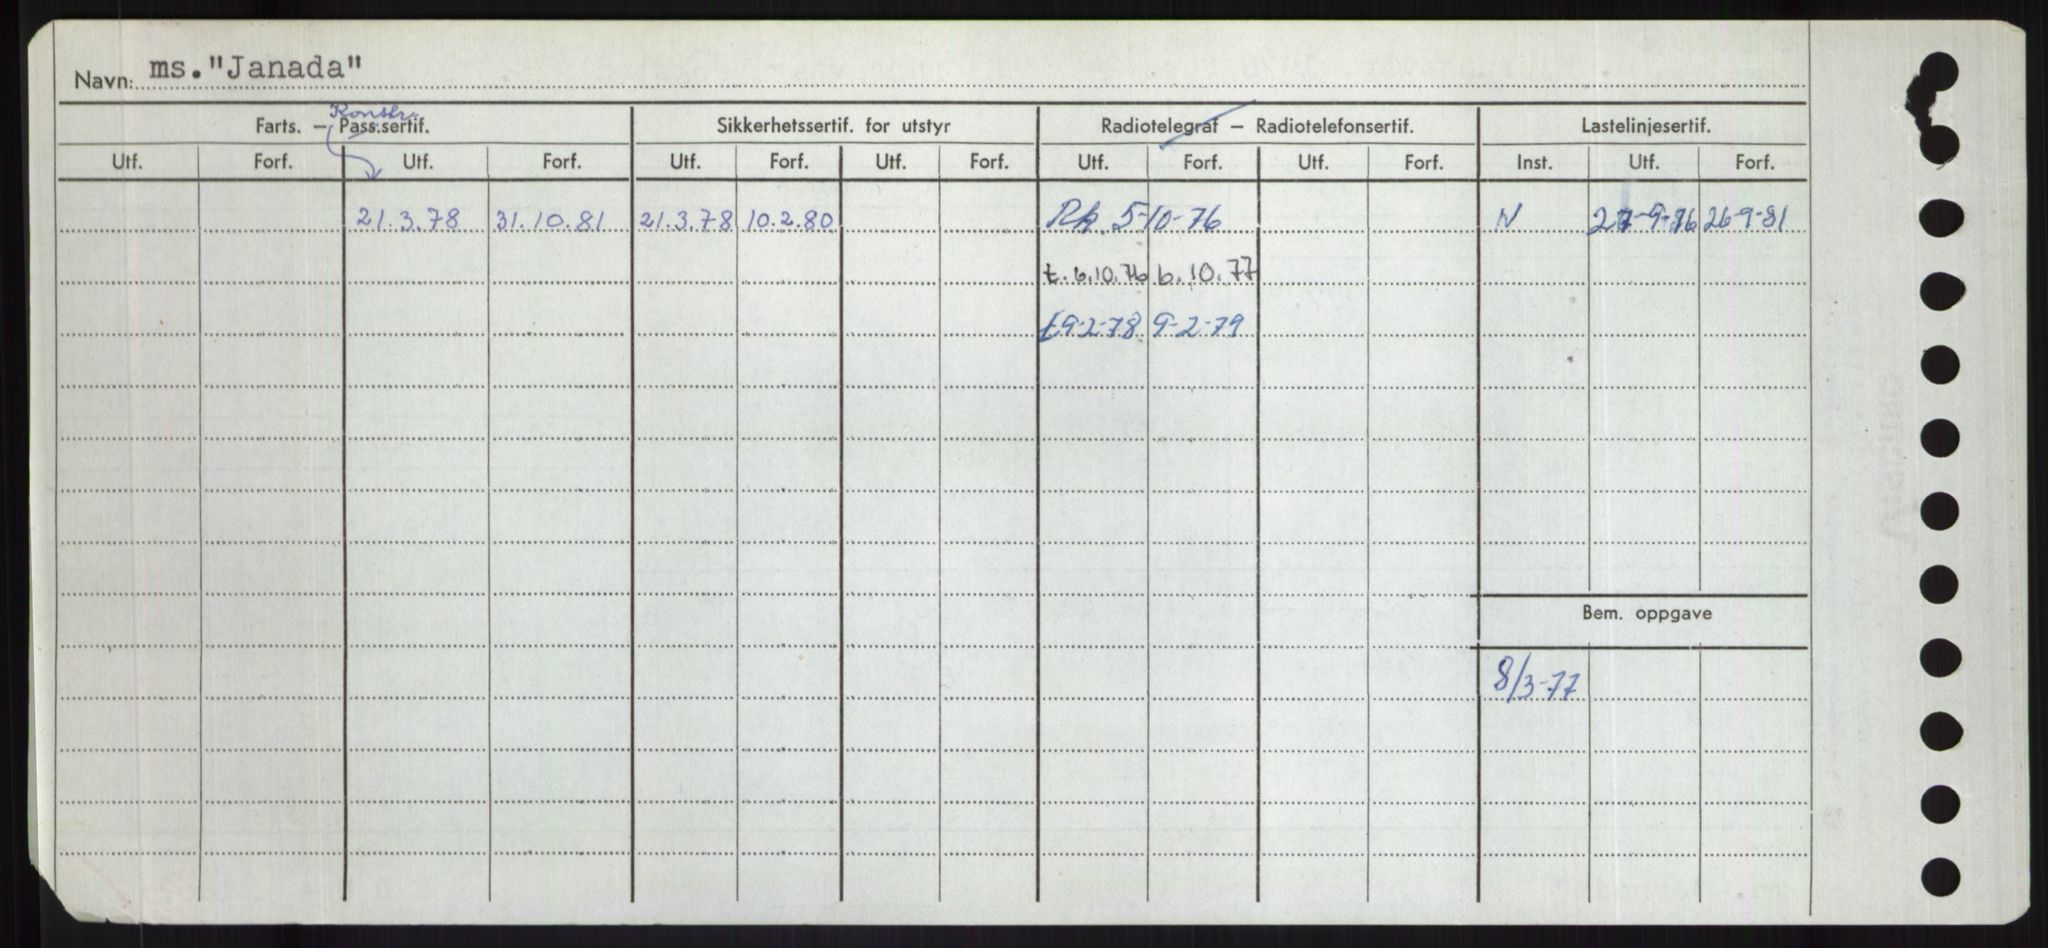 Navn: ms."Janada"
Konstr.
Farts. — Pass.sertif. Sikkerhetssertif. for utstyr Radiotelegraf — Radiotelefonsertif. Lastelinjesertif.
Utf. Forf. Utf. Forf. Utf. Forf. Utf. Forf. Utf. Forf. Utf. Forf. Inst. Utf. Forf.
21.3.78 31.10.81 21.3.78 10.2.80 5-10-76 N 27-9-76 26-9-81
t. 6.10.76 6.10.77
t 9-2-78 9-2-79
Bem. oppgave
8/3-77